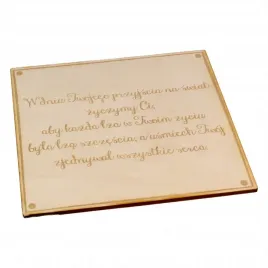 W dniu Twojego przyjścia na świat
życzymy Ci,
aby każda łza w Twoim życiu
była łzą szczęścia, a uśmiech Twój
zjednywał wszystkie serca.